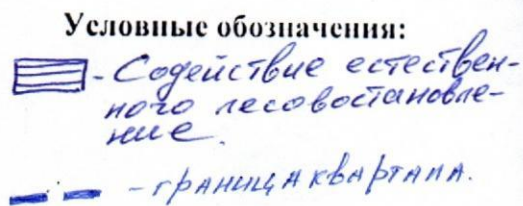 Условные обозначения:
- Содействие естествен-
ного лесовостановле-
ние.
- граница квартала.